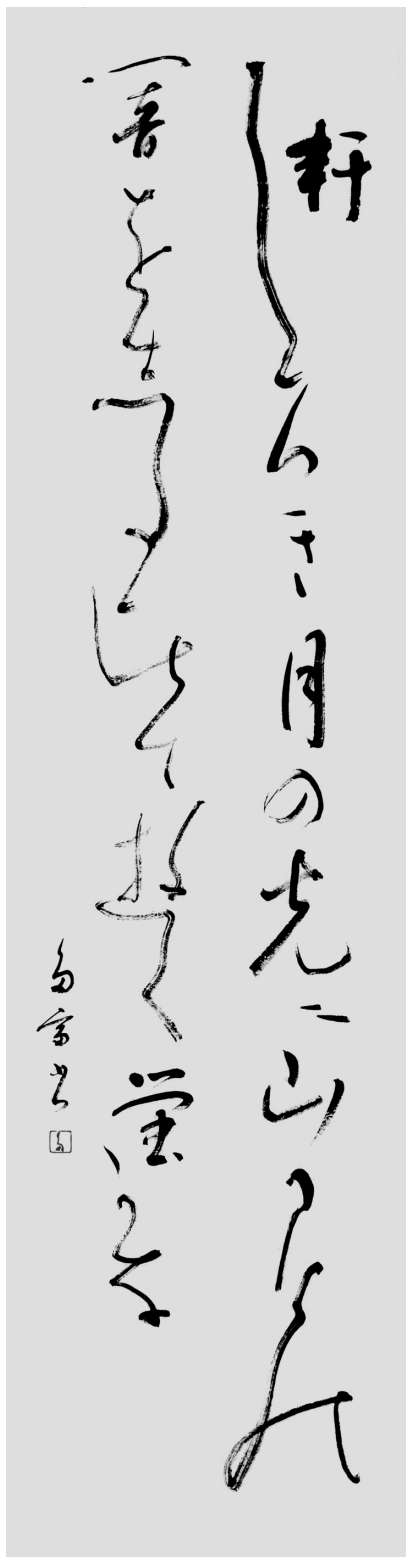 軒しろき月の光二山かけの
闇をしたひて遊く蛍かな